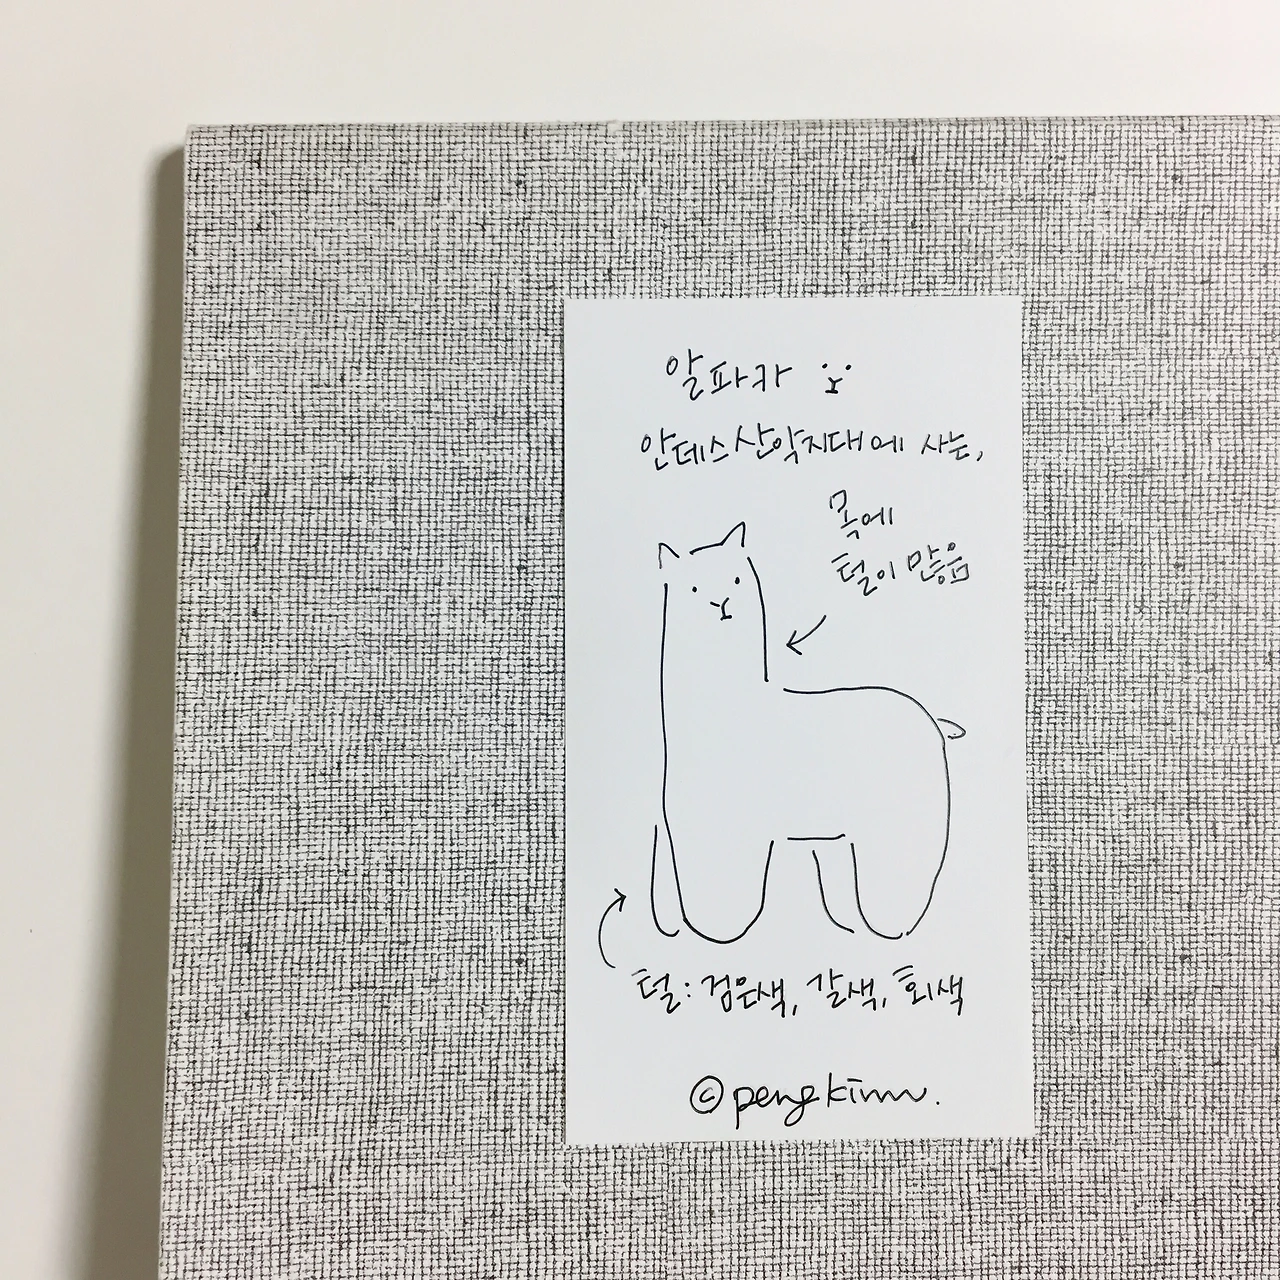 알파카
안데스산악지대에 사는,
목에
털이 많음
털: 검은색, 갈색, 회색
©pengkimm.